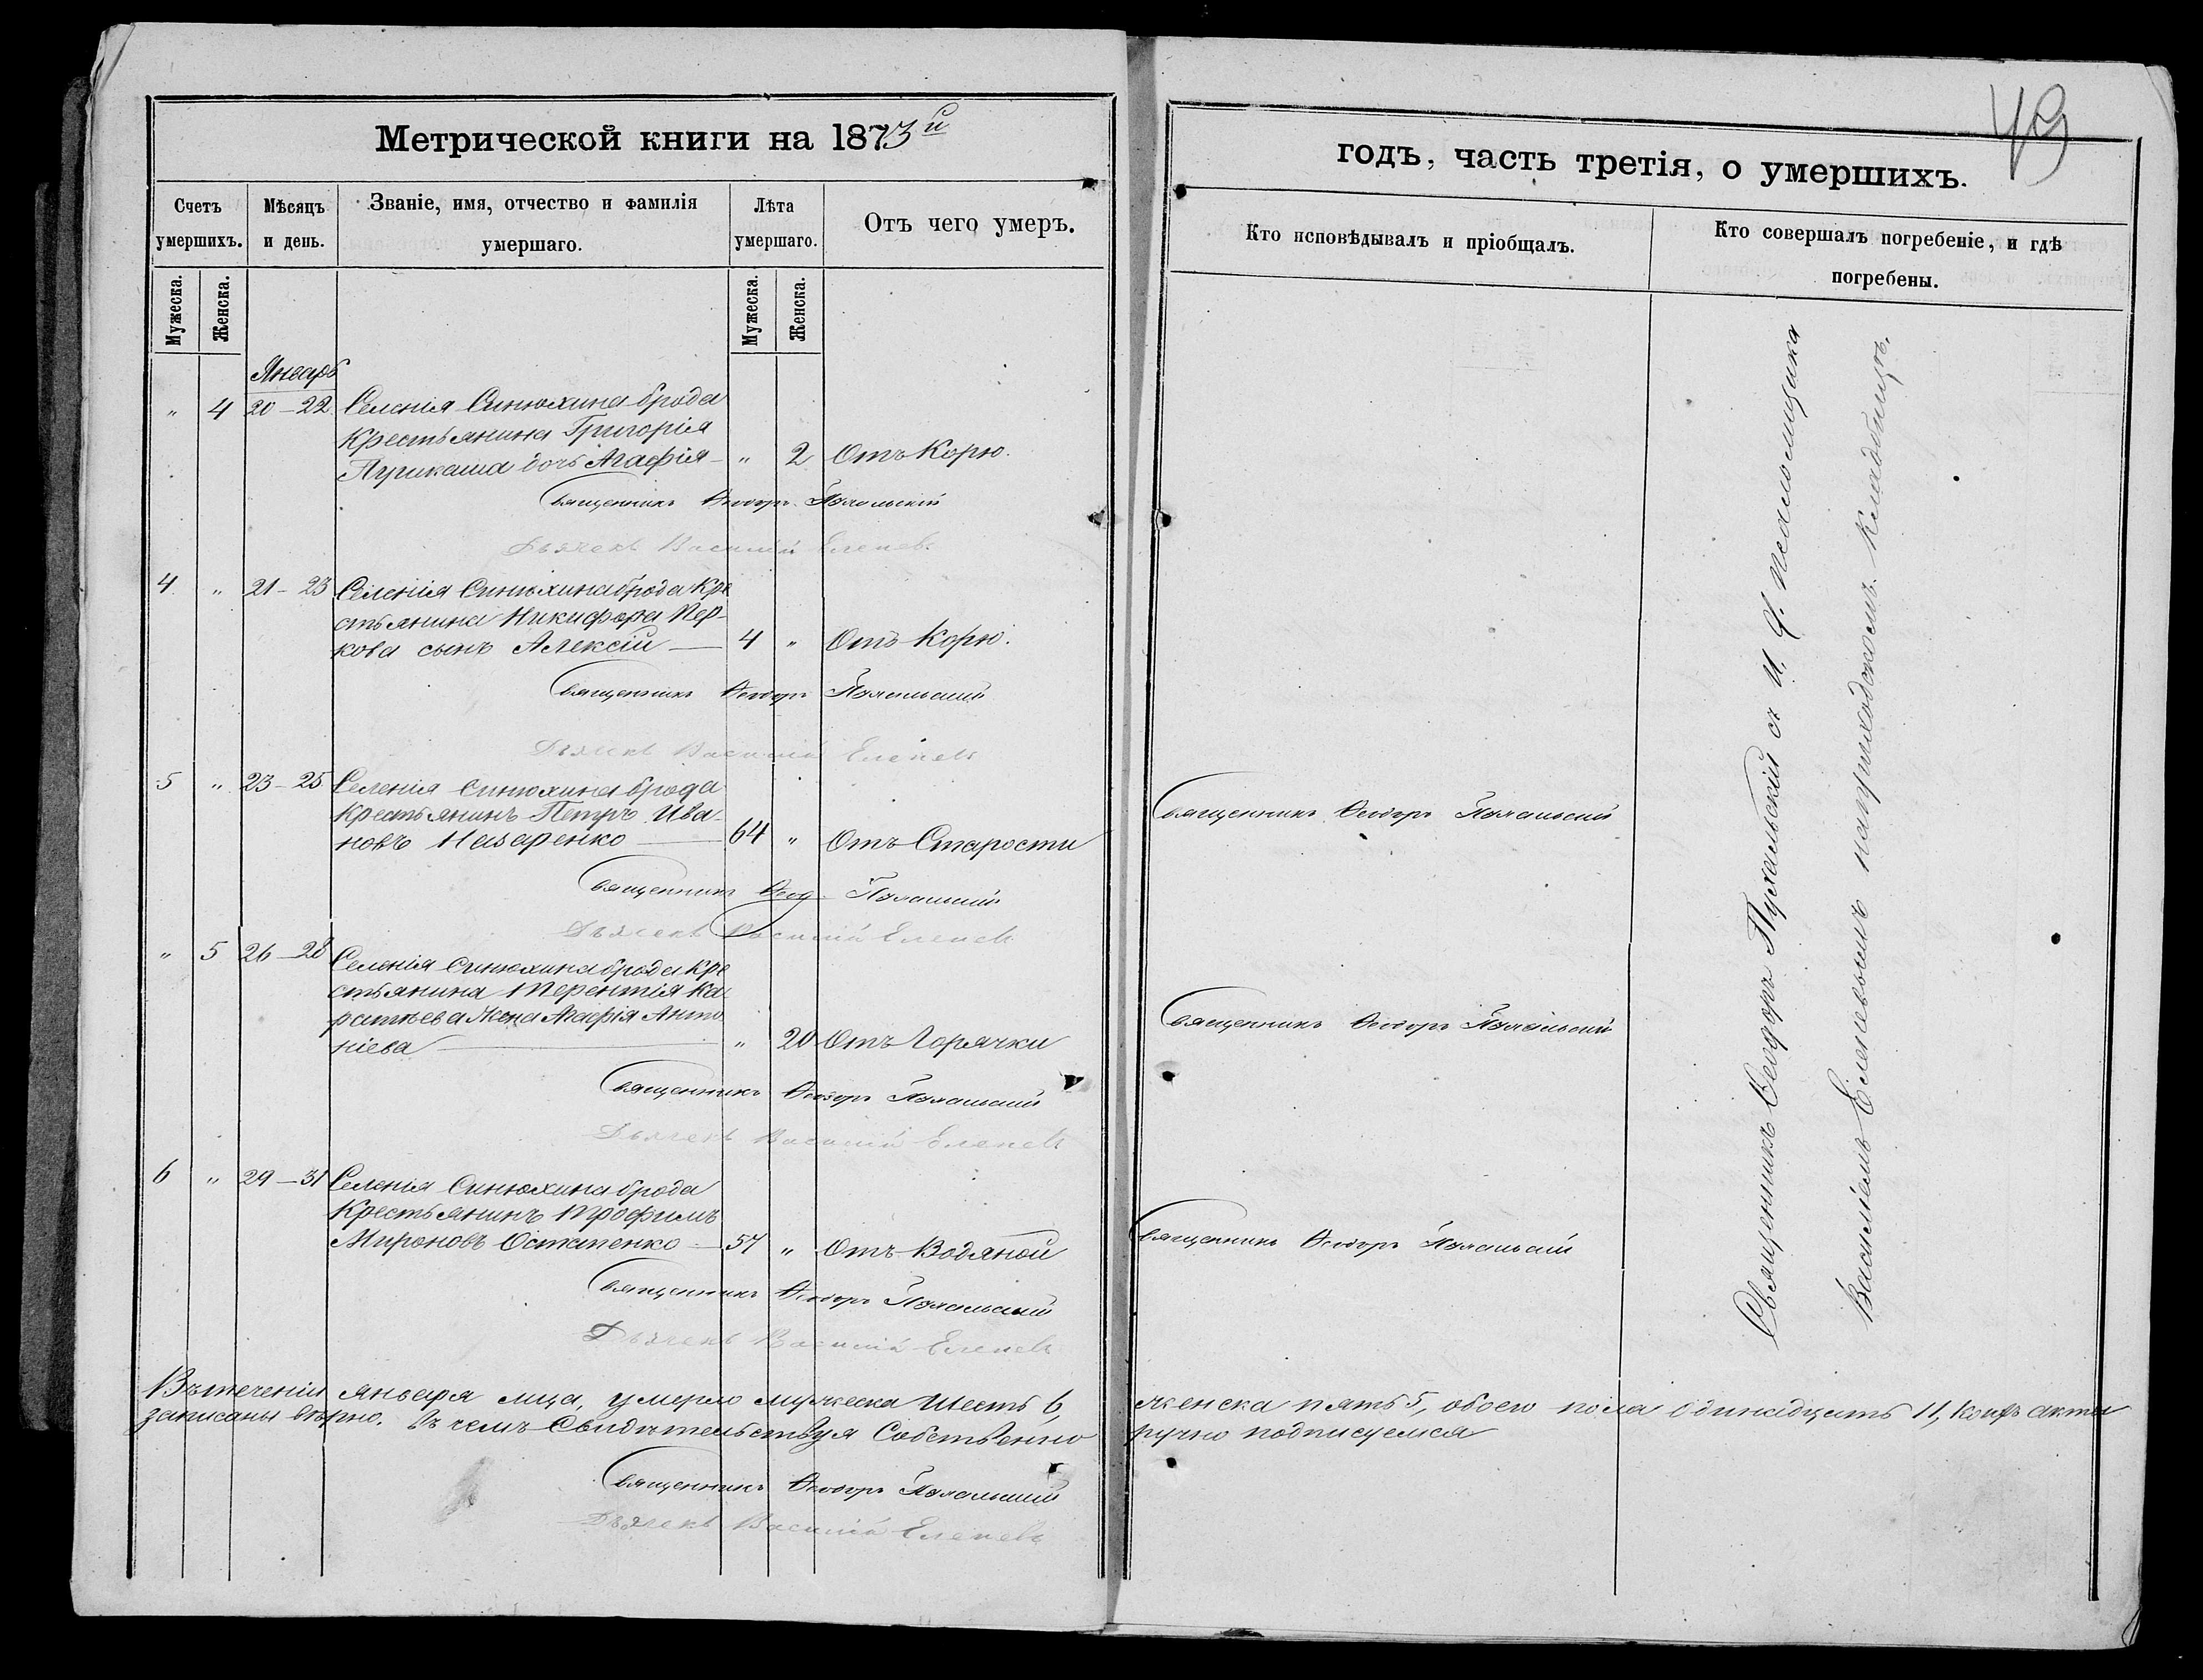 Метрической книги на 1873й
Счетъ умершихъ.
Мѣсяцъ и день.
Званіе, имя, отчество и фамилія умершаго.
Лѣта умершаго.
Отъ чего умеръ.
Мужеска.
Женска.
Мужеска.
Женска.
Январь
" 4 20-22 Селенія Синюхина брода
Крестьянина Григорія
дочь Агафія - " 2 Отъ Корю.
Священникъ Ѳеодоръ Пухальскій
Дьячекъ Василій Еленевъ
4 " 21-23 Селенія Синюхина брода Кре
стьянина Никифора Пер-
кова сынъ Алексій — 4 " Отъ Корю.
Священникъ Ѳеодоръ Пухальскій
Дьячекъ Василій Еленевъ
5 " 23-25 Селенія Синюхина брода
Крестьянинъ Петръ Ива-
новъ Назаренко — 64 " Отъ Старости
Священникъ Ѳеод. Пухальскій
Дьячекъ Василій Еленевъ
" 5 26-28 Селенія Синюхина брода Кре
стьянина Терентія Ка
жена Агафія Анто
ніева — " 20 Отъ Горячки
Священникъ Ѳеодоръ Пухальскій
Дьячекъ Василій Еленевъ
6 " 29-31 Селенія Синюхина брода
Крестьянинъ Трофимъ
Мироновъ Остапенко — 57 " Отъ Водяной
Священникъ Ѳеодоръ Пухальскій
Дьячекъ Василій Еленевъ
Въ теченіи января мца, умерло мужеска шесть 6,
записаны вѣрно. Въ чемъ Свидѣтельствуя Собственно
Священникъ Ѳеодоръ Пухальскій
Дьячекъ Василій Еленевъ
49
годъ, часть третія, о умершихъ.
Кто исповѣдывалъ и пріобщалъ.
Кто совершалъ погребеніе, и гдѣ
погребены.
Священникъ Ѳеодоръ Пухальскій
Священникъ Ѳеодоръ Пухальскій
Священникъ Ѳеодоръ Пухальскій
Священникъ Ѳеодоръ Пухальскій съ И. Д. псаломщика
Василіемъ Еленевымъ на приходскомъ кладбищѣ.
женска пять 5, обоего пола одинадцать 11, акты
ручно подписуемся